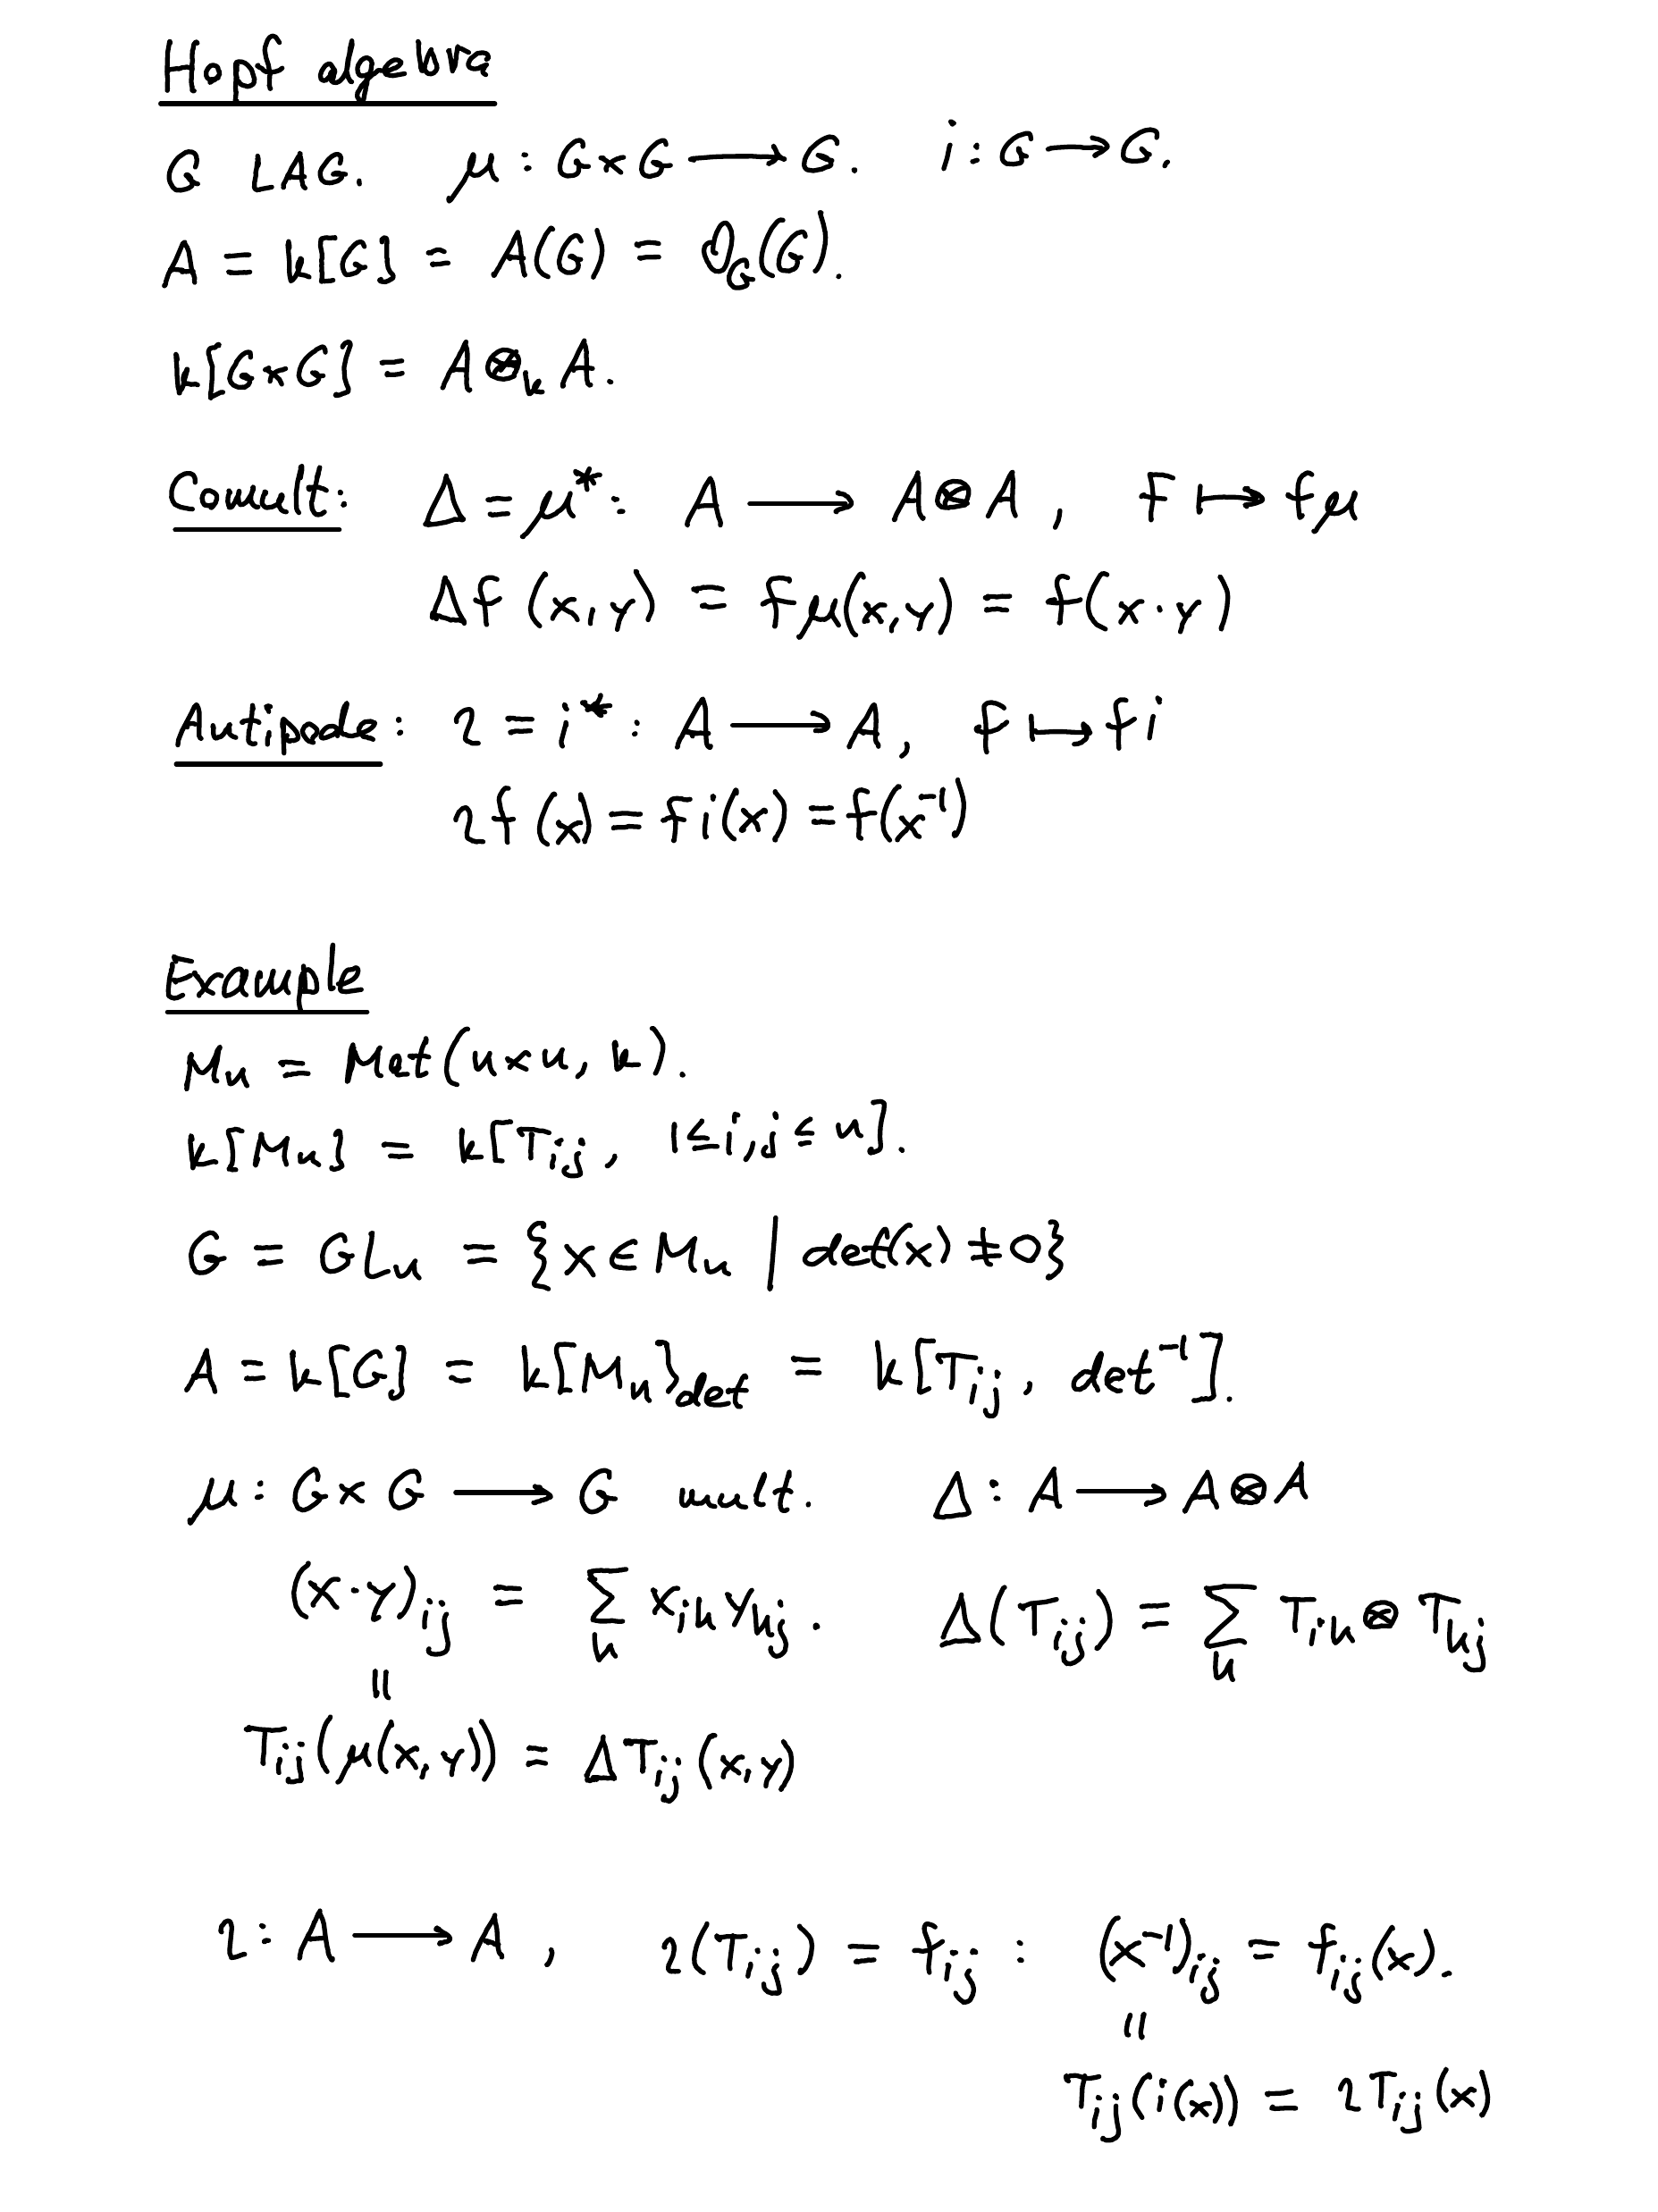 Hopf algebra
G LAG. μ : G×G ⟶ G. i : G ⟶ G.
A = k[G] = A(G) = 𝒪_G(G).
k[G×G] = A ⊗_k A.
Comult: Δ = μ* : A ⟶ A⊗A , f ⟼ fμ
Δf (x,y) = fμ(x,y) = f(x·y)
Antipode: ι = i* : A ⟶ A, f ⟼ fi
ιf (x) = fi(x) = f(x⁻¹)
Example
M_n = Mat(n×n, k).
k[M_n] = k[T_ij, 1≤i,j≤n].
G = GL_n = {x ∈ M_n | det(x) ≠ 0}
A = k[G] = k[M_n]_det = k[T_ij, det⁻¹].
μ : G×G ⟶ G mult. Δ : A ⟶ A⊗A
(x·y)_ij = ∑_k x_ik y_kj. Δ(T_ij) = ∑_k T_ik ⊗ T_kj
||
T_ij(μ(x,y)) = ΔT_ij(x,y)
ι : A ⟶ A , ι(T_ij) = f_ij : (x⁻¹)_ij = f_ij(x).
||
T_ij(i(x)) = ιT_ij(x)